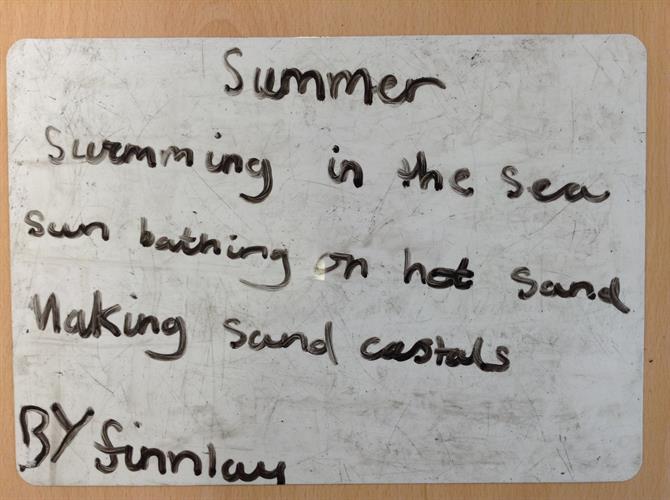 Summer
Swimming in the Sea
Sun bathing on hot Sand
Making Sand castals
BY finnlay